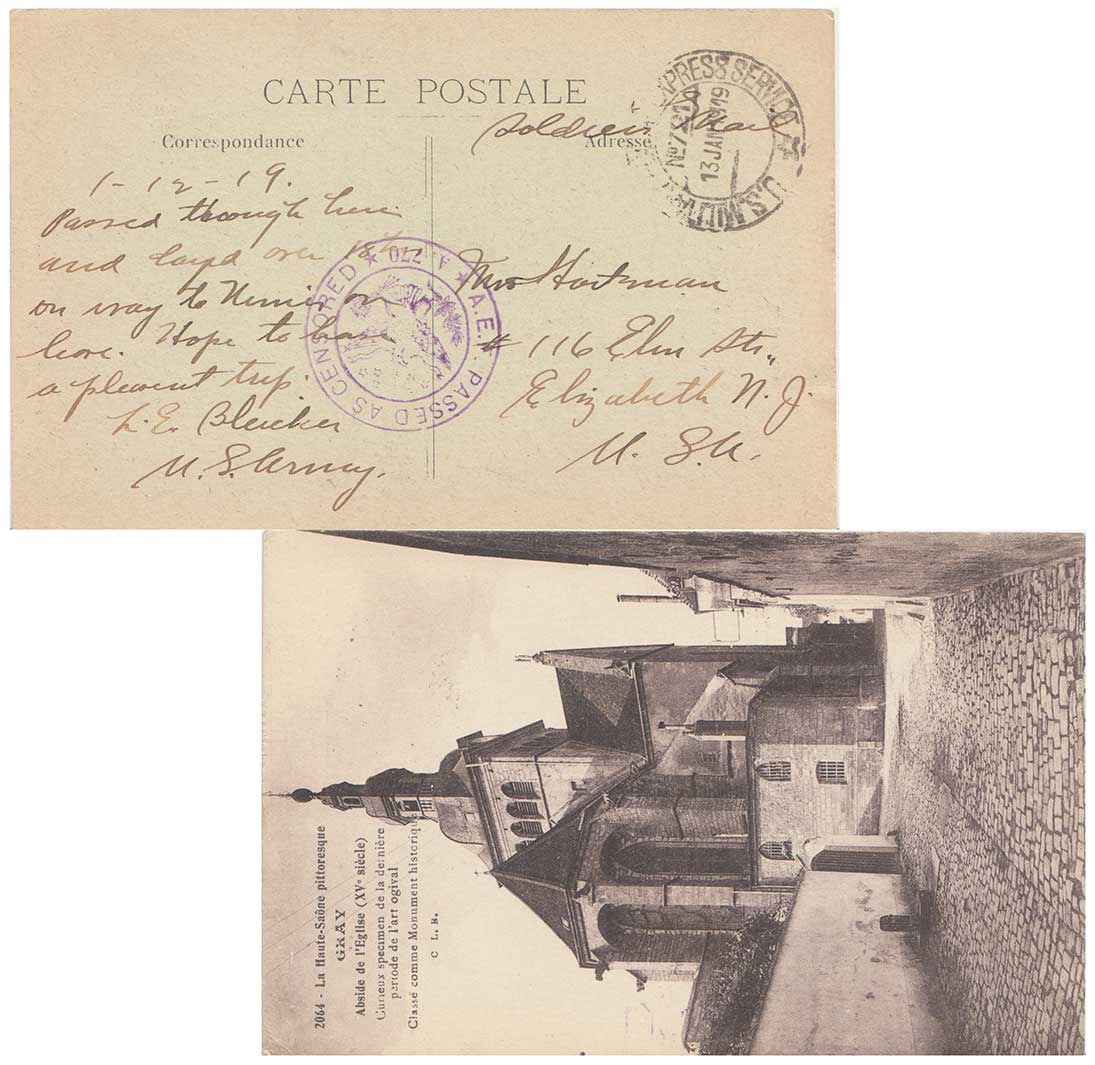 CARTE POSTALE
Correspondance
Adresse
Soldiers Mail
EXPRESS SERVICE ★ U.S. MILIT
No 7
13 JAN 1919
1-12-19.
Passed through here
and layd over
on way to Nimes on
leave. Hope to have
a pleasent trip.
L.E. Bleicher
U.S. Army.
A.E.F. PASSED AS CENSORED ★ A.770 ★
Mrs Hartman
# 116 Elm Str.,
Elizabeth N. J.
U. S. A.
2064 - La Haute-Saône pittoresque
GRAY
Abside de l'Eglise (XVe siècle)
Curieux specimen de la dernière
periode de l'art ogival
Classé comme Monument historique
C L. B.